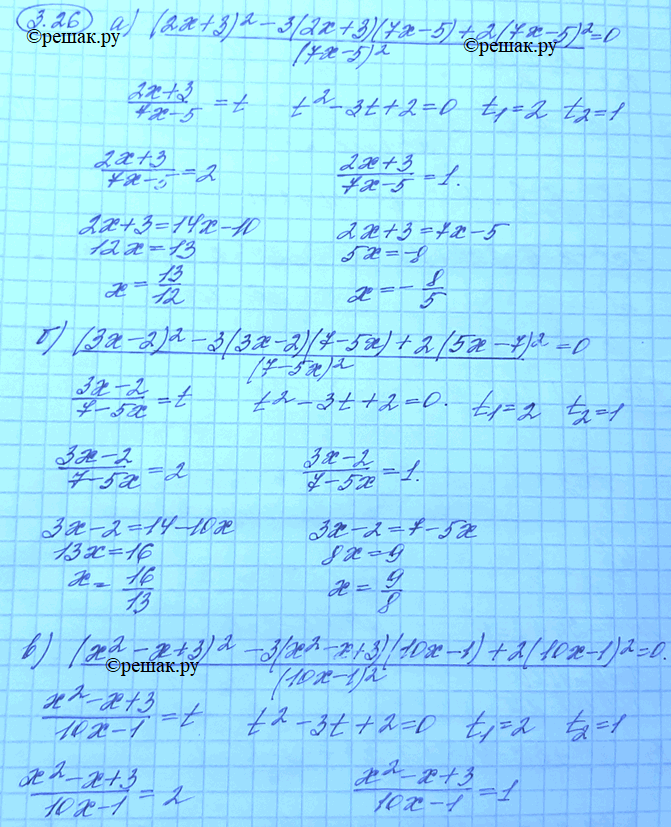 3.26 а) (2x+3)² − 3(2x+3)(7x−5) + 2(7x−5)² = 0
(7x−5)²
©решак.ру ©решак.ру
(2x+3)/(7x−5) = t t² − 3t + 2 = 0 t₁ = 2 t₂ = 1
(2x+3)/(7x−5) = 2 (2x+3)/(7x−5) = 1.
2x+3 = 14x−10 2x+3 = 7x−5
12x = 13 5x = −8
x = 13/12 x = −8/5
б) (3x−2)² − 3(3x−2)(7−5x) + 2(5x−7)² = 0
(7−5x)²
(3x−2)/(7−5x) = t t² − 3t + 2 = 0. t₁ = 2 t₂ = 1
(3x−2)/(7−5x) = 2 (3x−2)/(7−5x) = 1.
3x−2 = 14−10x 3x−2 = 7−5x
13x = 16 8x = 9
x = 16/13 x = 9/8
в) (x²−x+3)² − 3(x²−x+3)(10x−1) + 2(10x−1)² = 0.
©решак.ру (10x−1)²
(x²−x+3)/(10x−1) = t t² − 3t + 2 = 0 t₁ = 2 t₂ = 1
(x²−x+3)/(10x−1) = 2 (x²−x+3)/(10x−1) = 1